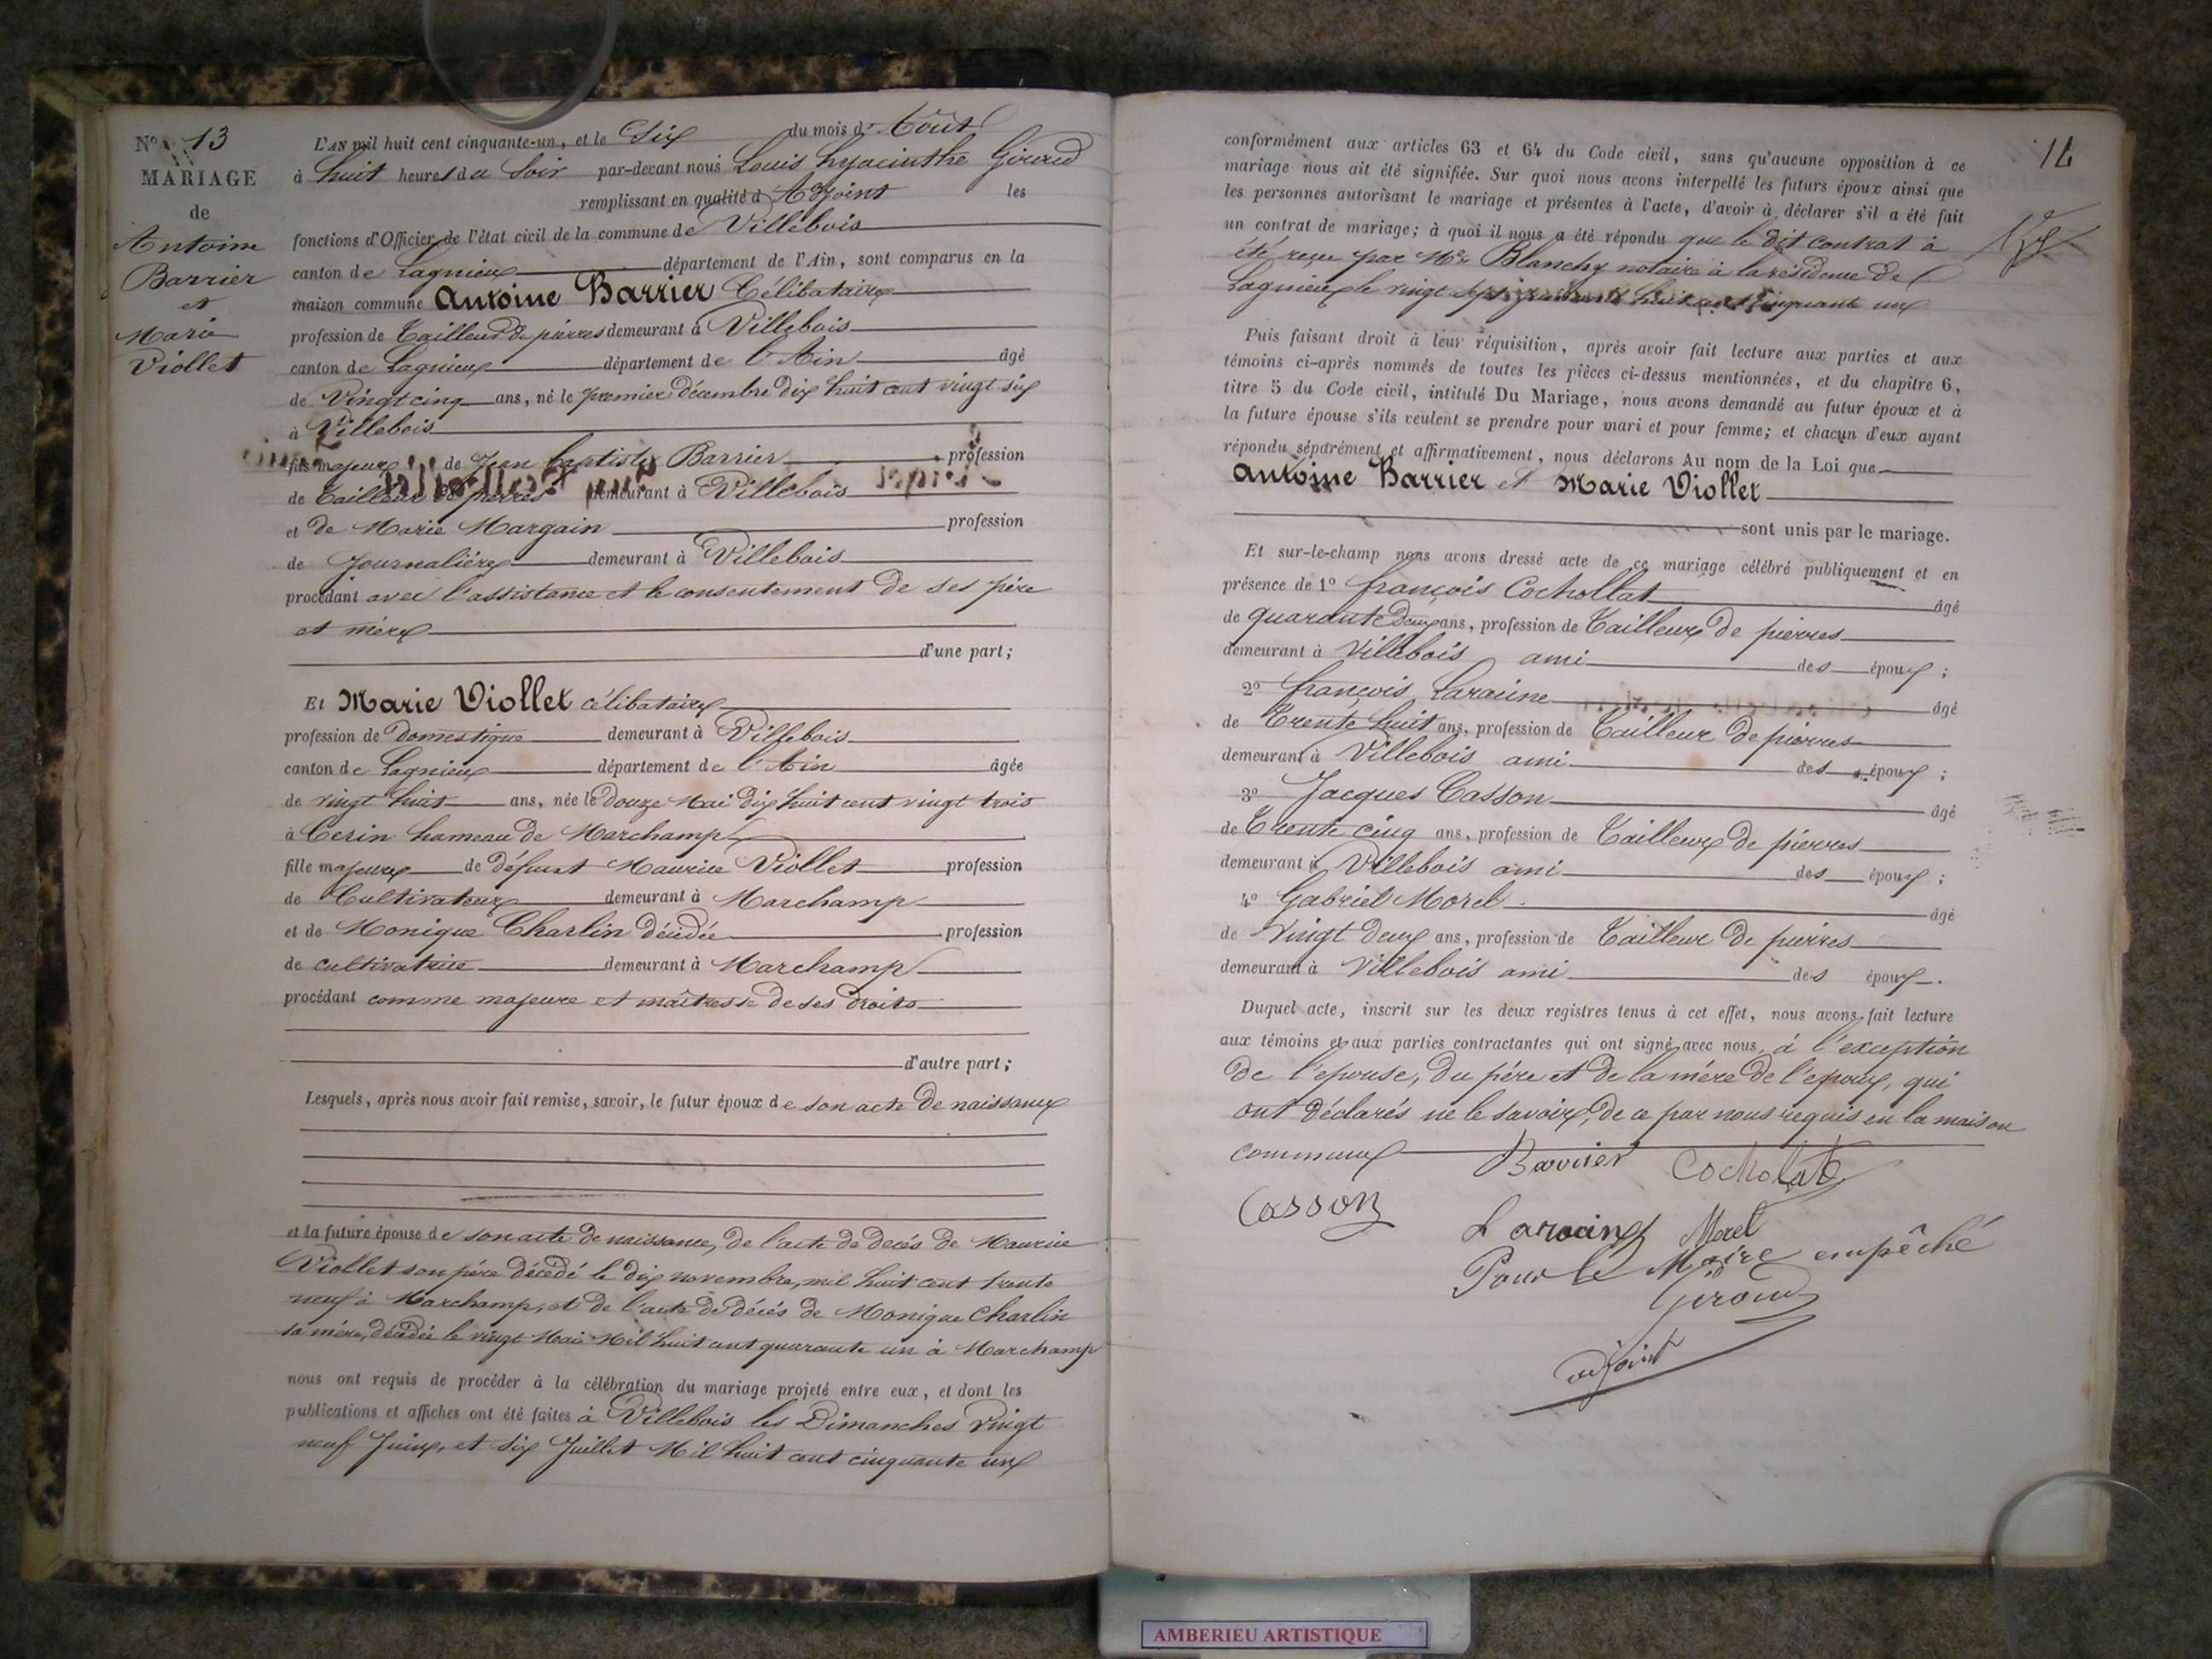 N° 13
MARIAGE
de
Antoine
Barrier
et
Marie
Viollet
L'AN mil huit cent cinquante-un, et le Six du mois d'Août
à huit heures du Soir par-devant nous Louis hyacinthe Giroud
remplissant en qualité d'Adjoint les
fonctions d'Officier de l'état civil de la commune de Villebois
canton de Lagnieu département de l'Ain, sont comparus en la
maison commune Antoine Barrier Célibataire
profession de Tailleur de pierres demeurant à Villebois
canton de Lagnieu département de l'Ain âgé
de Vingt cinq ans, né le premier décembre dix huit cent vingt six
à Villebois
fils majeur de Jean baptiste Barrier profession
de Tailleur de pierres demeurant à Villebois
et de Marie Margain profession
de Journalière demeurant à Villebois
procédant avec l'assistance et le consentement de ses père
et mère
d'une part;
Et Marie Viollet célibataire
profession de Domestique demeurant à Villebois
canton de Lagnieu département de l'Ain âgée
de vingt huit ans, née le Douze Mai dix huit cent vingt trois
à Cerin hameau de Marchamp
fille majeure de défunt Maurice Viollet profession
de Cultivateur demeurant à Marchamp
et de Monique Charlin décédée profession
de cultivatrice demeurant à Marchamp
procédant comme majeure et maîtresse de ses droits
d'autre part;
Lesquels, après nous avoir fait remise, savoir, le futur époux de son acte de naissance
et la future épouse de son acte de naissance, de l'acte de decés de Maurice
Viollet son père décédé le dix novembre, mil huit cent trente
neuf à Marchamp, et de l'acte de décés de Monique Charlin
sa mère, décédée le vingt Mai Mil huit cent quarante un à Marchamp
nous ont requis de procéder à la célébration du mariage projeté entre eux, et dont les
publications et affiches ont été faites à Villebois les Dimanches vingt
neuf Juin, et six Juillet Mil huit cent cinquante un
14
conformément aux articles 63 et 64 du Code civil, sans qu'aucune opposition à ce
mariage nous ait été signifiée. Sur quoi nous avons interpellé les futurs époux ainsi que
les personnes autorisant le mariage et présentes à l'acte, d'avoir à déclarer s'il a été fait
un contrat de mariage; à quoi il nous a été répondu que le dit contrat à
été reçu par Me Blanchy notaire à la résidence de
Lagnieu le vingt sept huit cent cinquante un
Puis faisant droit à leur réquisition, après avoir fait lecture aux parties et aux
témoins ci-après nommés de toutes les pièces ci-dessus mentionnées, et du chapitre 6,
titre 5 du Code civil, intitulé Du Mariage, nous avons demandé au futur époux et à
la future épouse s'ils veulent se prendre pour mari et pour femme; et chacun d'eux ayant
répondu séparément et affirmativement, nous déclarons Au nom de la Loi que
Antoine Barrier et Marie Viollet
sont unis par le mariage.
Et sur-le-champ nous avons dressé acte de ce mariage célébré publiquement et en
présence de 1° françois Cochollat âgé
de quarante Deux ans, profession de Tailleur de pierres
demeurant à Villebois ami des époux;
2° françois Laraine âgé
de Trente huit ans, profession de Tailleur de pierres
demeurant à Villebois ami des époux;
3° Jacques Casson âgé
de Trente cinq ans, profession de Tailleur de pierres
demeurant à Villebois ami des époux;
4° Gabriel Morel âgé
de Vingt Deux ans, profession de Tailleur de pierres
demeurant à Villebois ami des époux.
Duquel acte, inscrit sur les deux registres tenus à cet effet, nous avons fait lecture
aux témoins et aux parties contractantes qui ont signé avec nous, à l'exception
de l'epouse, du père et de la mère de l'epoux, qui
ont déclarés ne le savoir, de ce par nous requis en la maison
commune
Barrier Cocholat
Casson
Morel
Pour le Maire empêché
Giroud
adjoint
AMBERIEU ARTISTIQUE